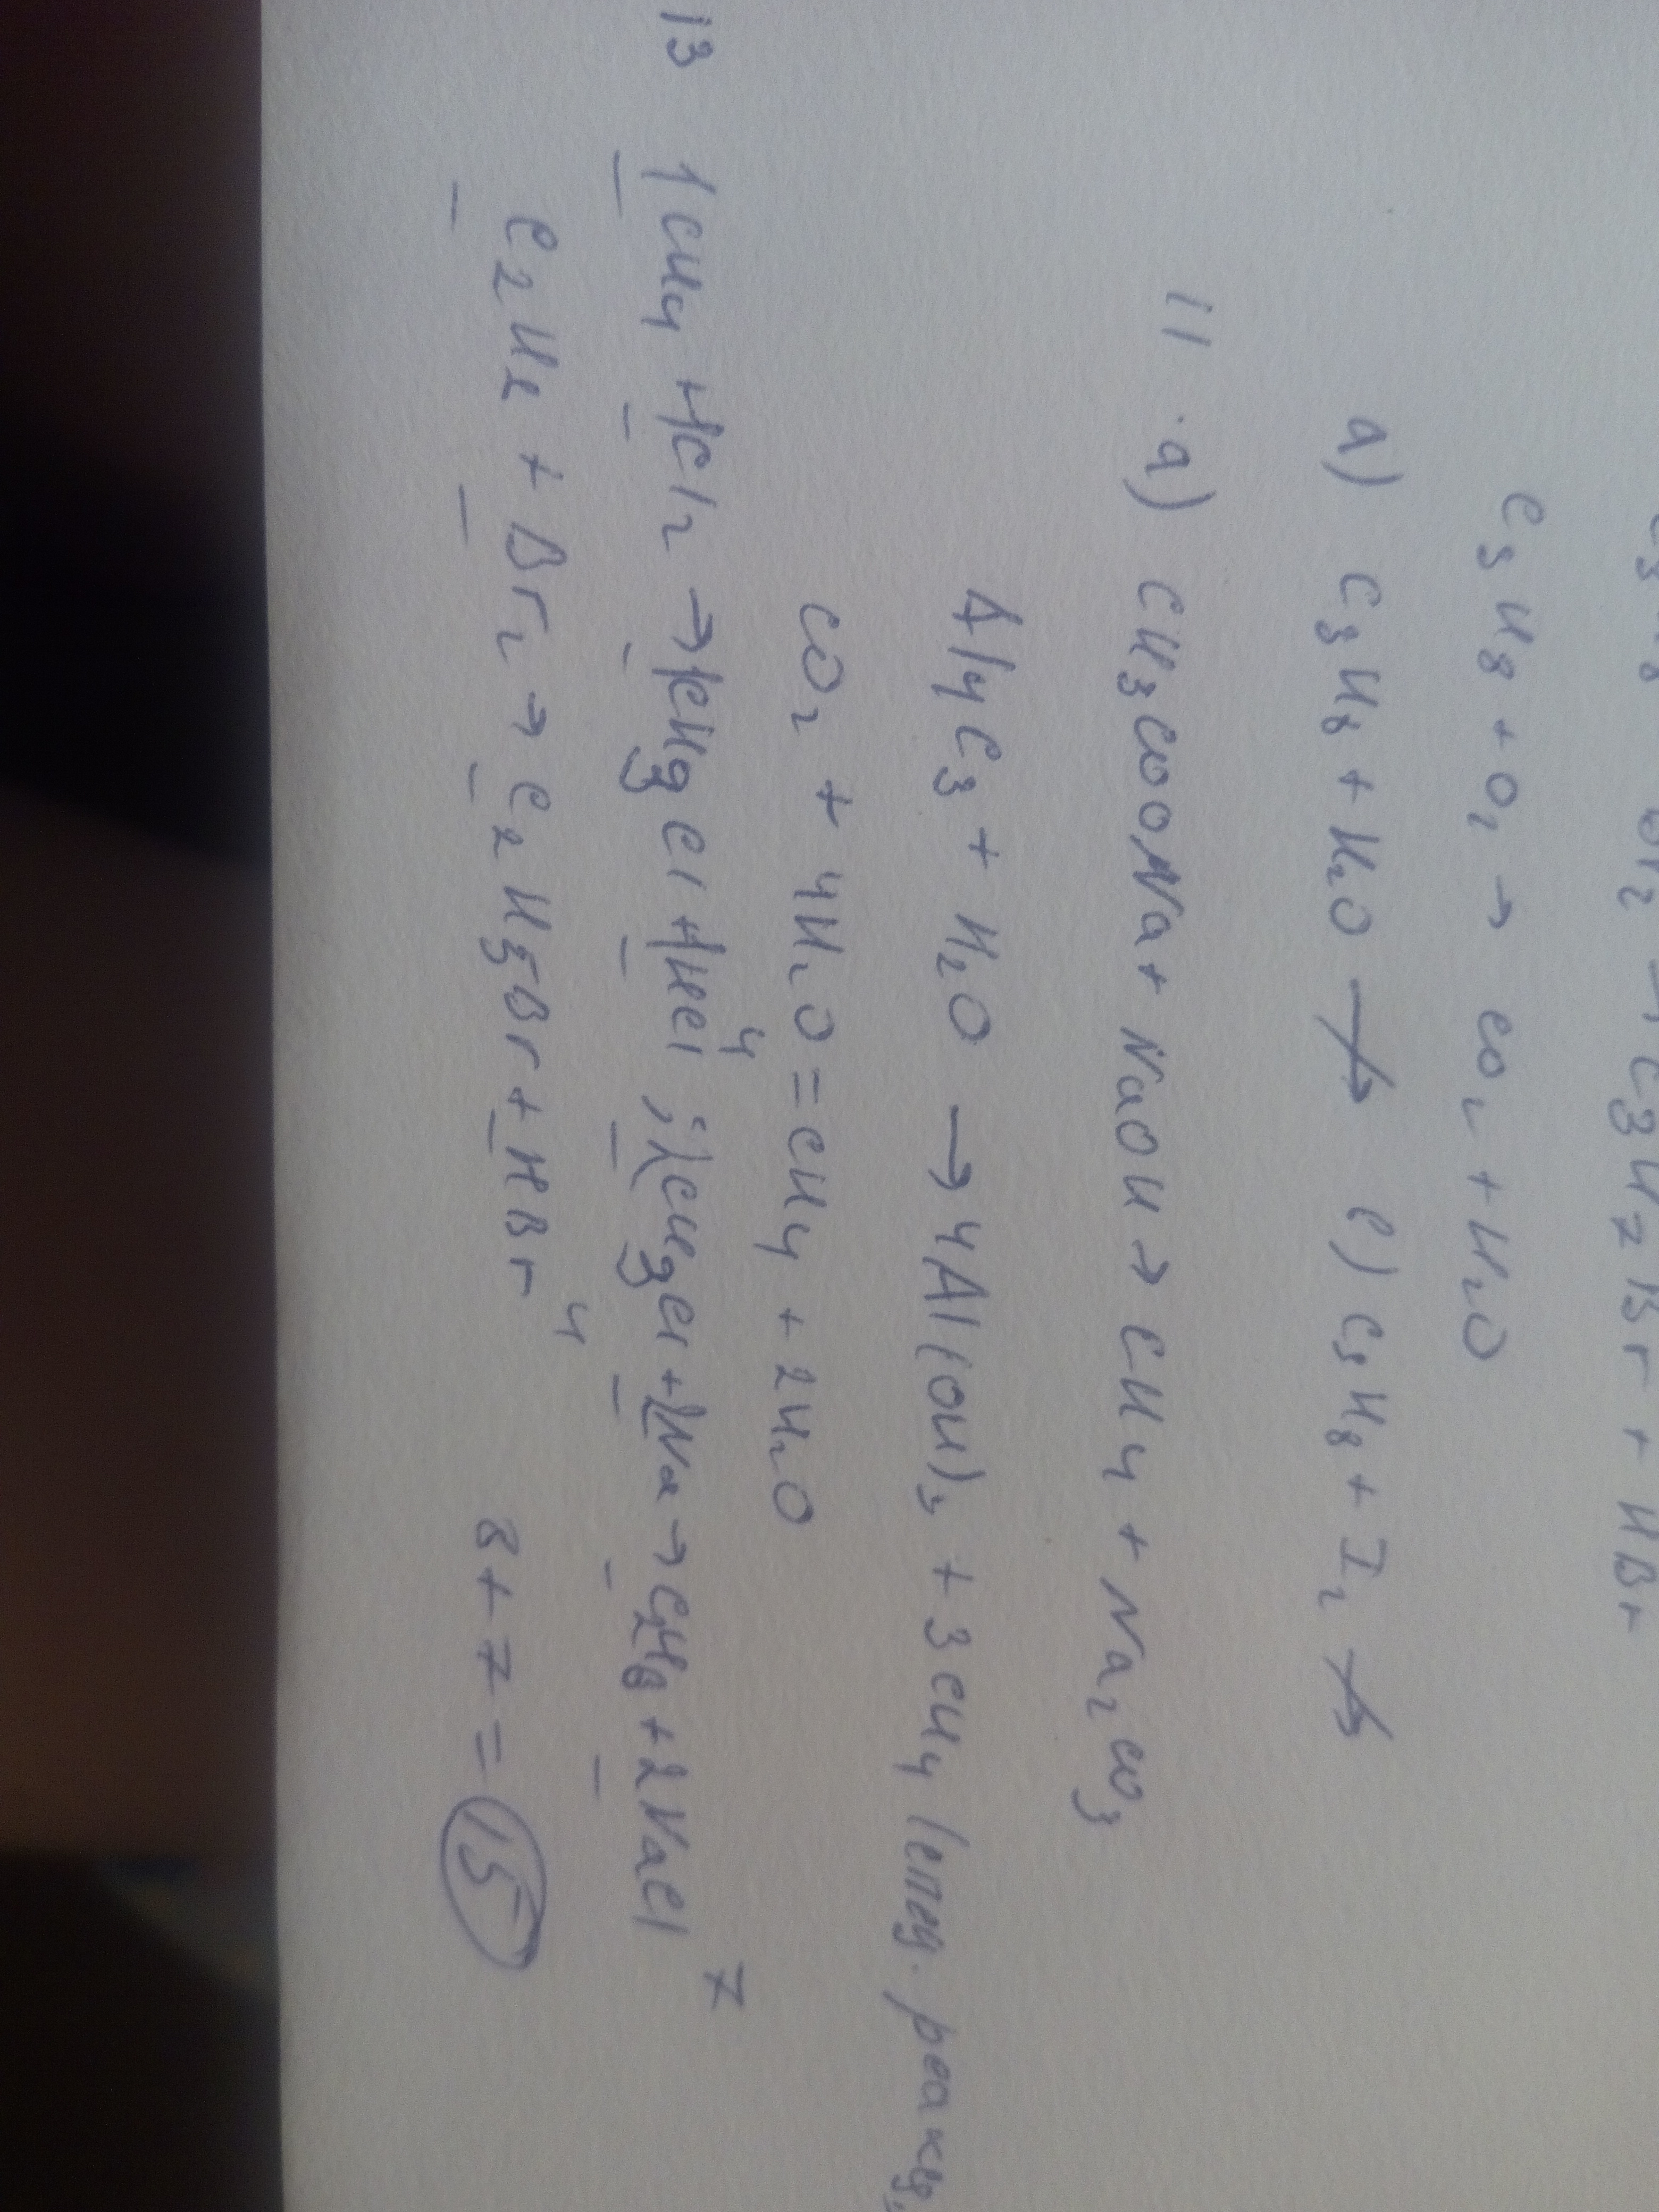 C₃H₈ + Br₂ → C₃H₇Br + HBr
C₃H₈ + O₂ → CO₂ + H₂O
д) C₃H₈ + H₂O ↛ е) C₃H₈ + I₂ ↛
11. а) CH₃COONa + NaOH → CH₄ + Na₂CO₃
Al₄C₃ + H₂O → 4Al(OH)₃ + 3CH₄
CO₂ + 4H₂O = CH₄ + 2H₂O
13 1CH₄ + 1Cl₂ → 1CH₃Cl + 1HCl ⁴ ; 2CH₃Cl + 2Na → C₂H₆ + 2NaCl ⁷
C₂H₆ + Br₂ → C₂H₅Br + HBr ⁴ 8 + 7 = 15